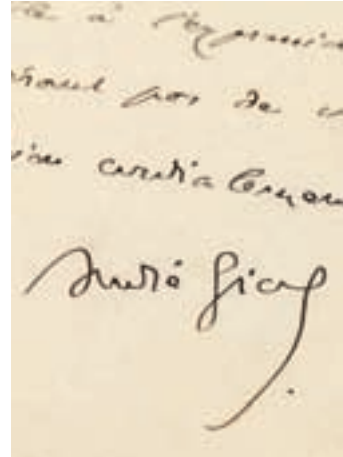 à
pas de
ien cordialemen
André Gide